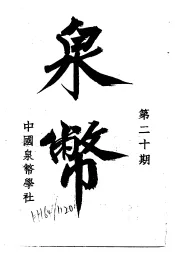 泉幣
第二十期
中國泉幣學社